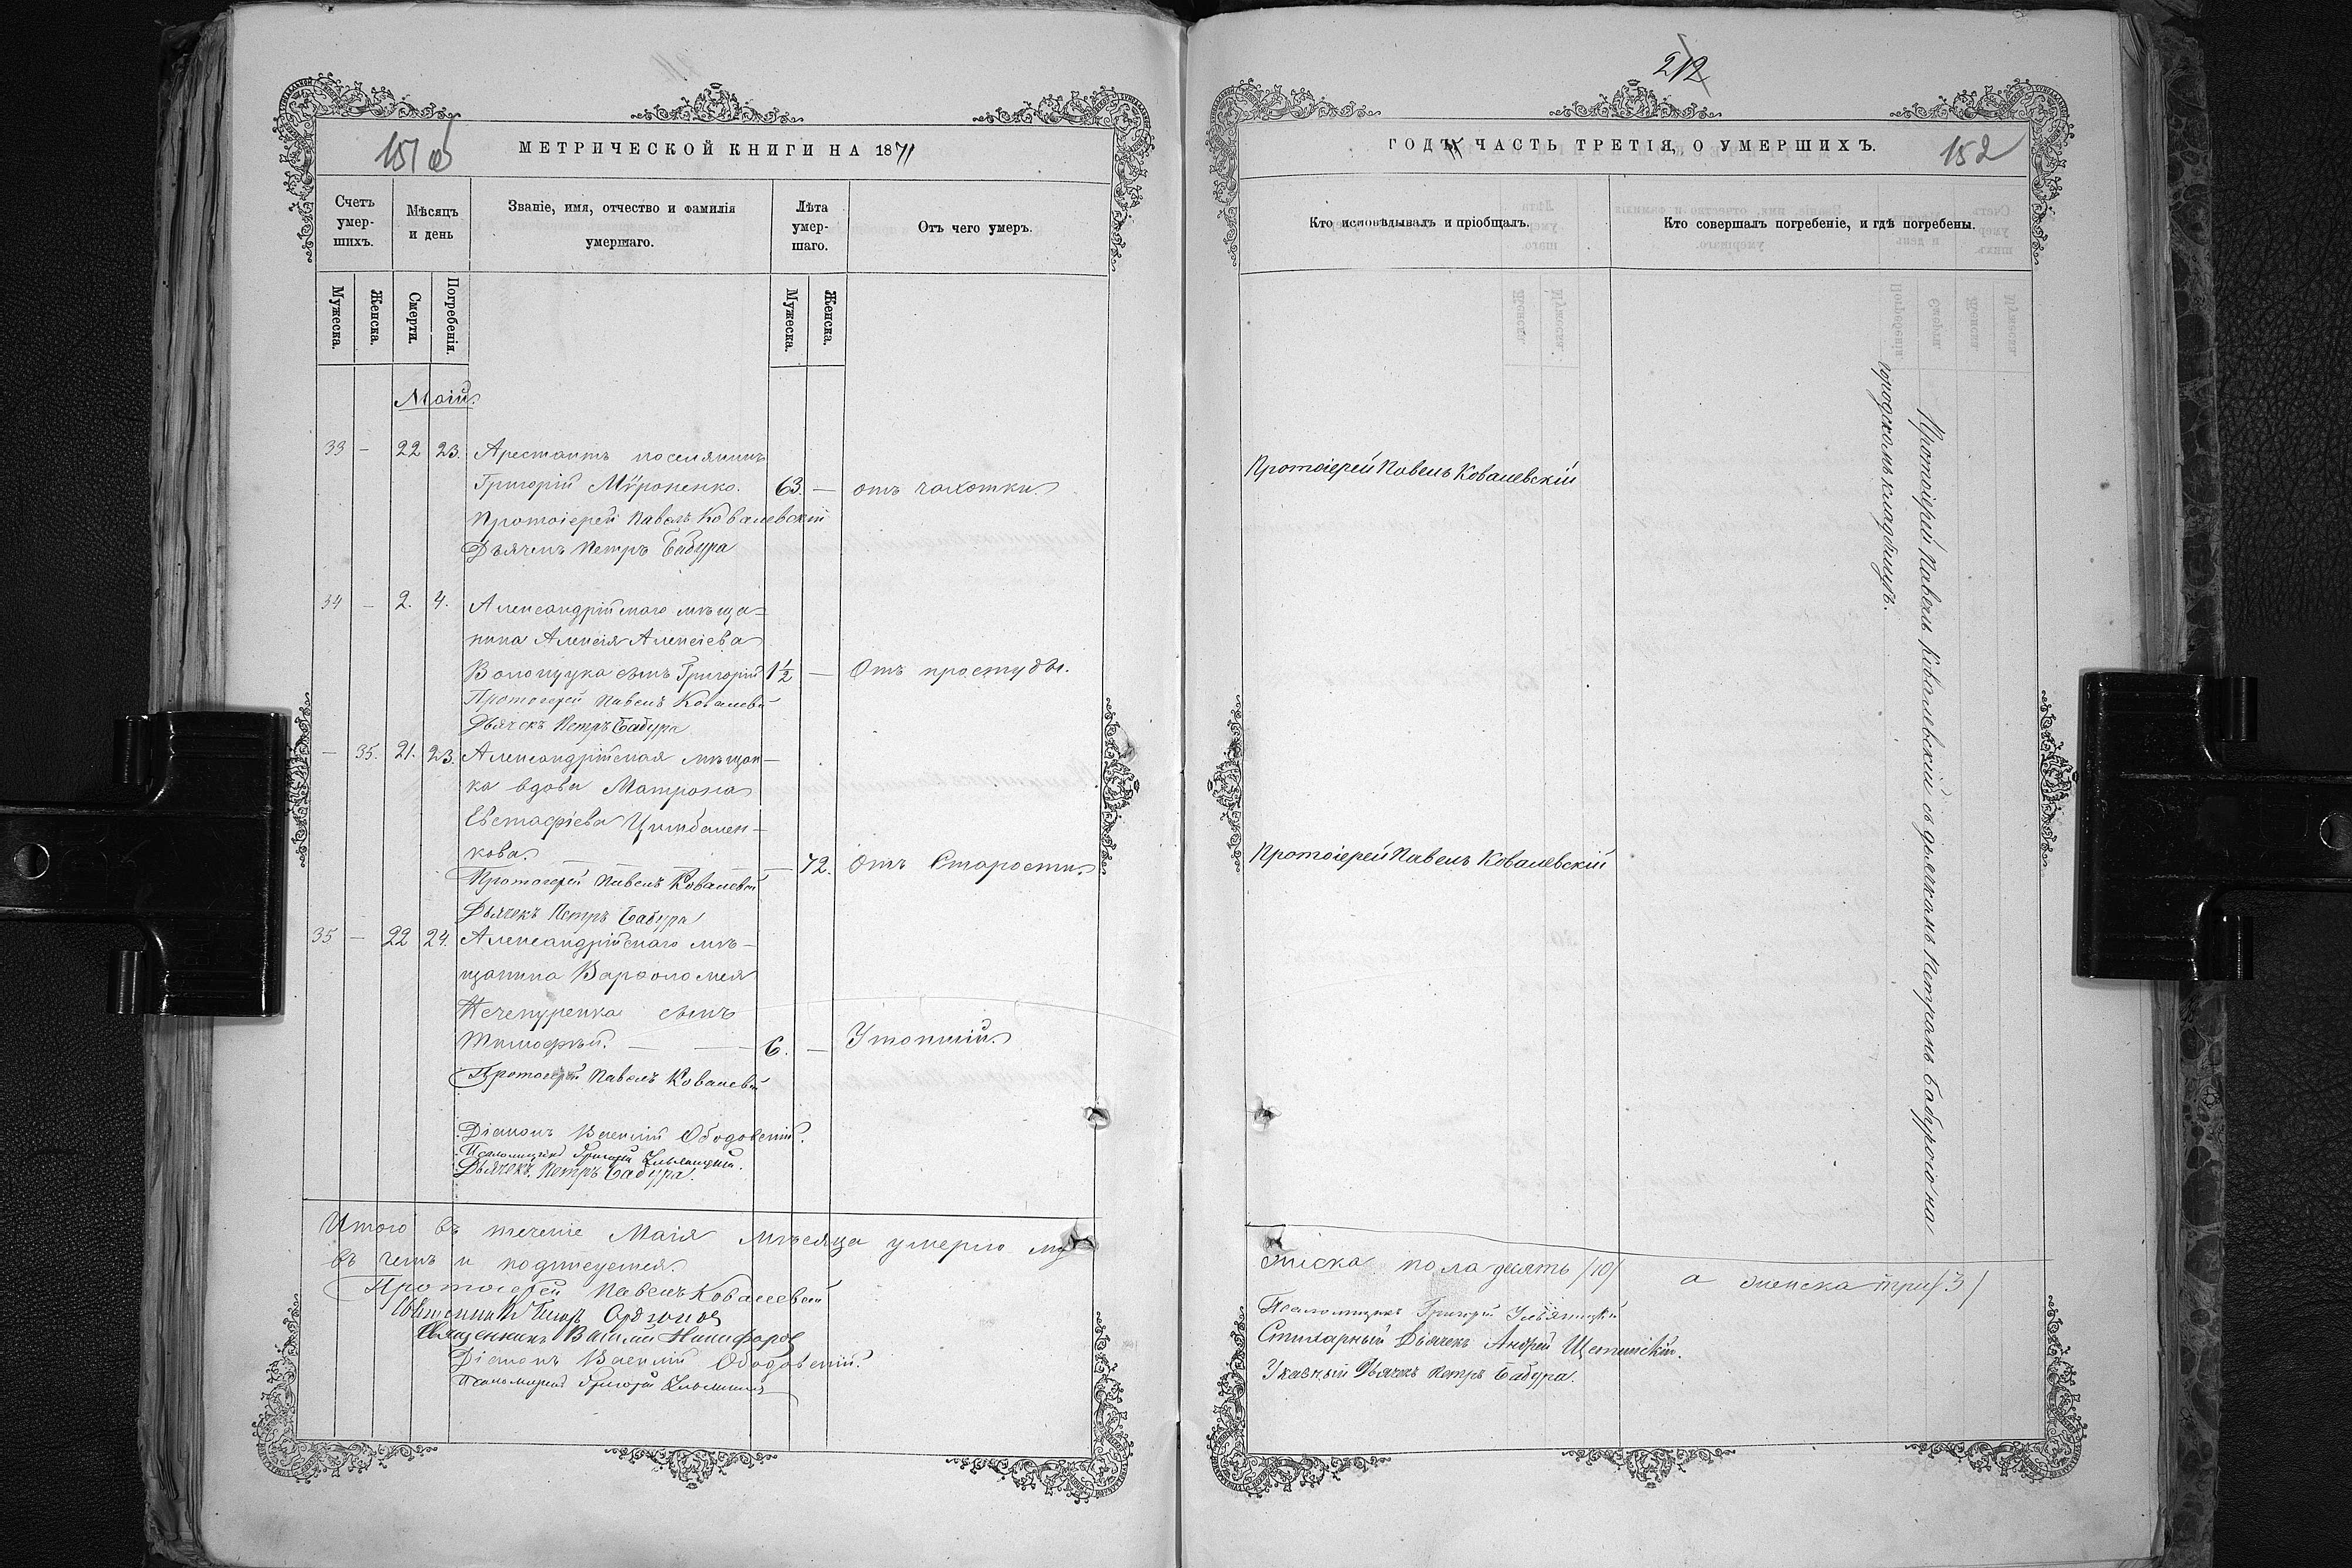 151об
МЕТРИЧЕСКОЙ КНИГИ НА 1871
Счетъ умер-шихъ.
Мѣсяцъ и день
Званіе, имя, отчество и фамилія умершаго.
Лѣта умер-шаго.
Отъ чего умеръ.
Мужеска.
Женска.
Смерти.
Погребенія.
Мужеска.
Женска.
Маій.
33 – 22 23. Арестантъ поселянинъ
Григорій Мѵроненко. 63. – отъ чахотки
Протоіерей Павелъ Ковалевскій
Дьячекъ Петръ Бабура
34 – 2. 4. Александрійскаго мѣща=
нина Алексія Алексіева
сынъ Григорій 1½ – Отъ простуды.
Протоіерей Павелъ Ковалевскій
Дьячекъ Петръ Бабура
– 35. 21. 23. Александрійская мѣщан–
ка вдова Матрона
Евстафіева Цымбален–
кова. – 72. Отъ Старости.
Протоіерей Павелъ Ковалевскій
Дьячекъ Петръ Бабура
35 – 22 24. Александрійскаго мѣ–
щанина Варфоломея
Нечепуренка сынъ
Тимофѣй. 6. – Утопшій.
Протоіерей Павелъ Ковалевскій
Діаконъ Василій Ободовскій.
Псаломщикъ Григорій Ульяницкій.
Дьячекъ Петръ Бабура.
Итого въ теченіе Маія мѣсяца умерло му
въ чемъ и подписуемся.
Протоіерей Павелъ Ковалевскій
Священникъ
Священникъ Василій Никифоровъ
Діаконъ Василій Ободовскій.
Псаломщикъ Григорій Ульяницкій
212
ГОДЪ ЧАСТЬ ТРЕТІЯ, О УМЕРШИХЪ.
152
Кто исповѣдывалъ и пріобщалъ.
Кто совершалъ погребеніе, и гдѣ погребены.
Протоіерей Павелъ Ковалевскій
Протоіерей Павелъ Ковалевскій
Протоіерей Павелъ Ковалевскій съ дьячкомъ Петромъ Бабурою на
городскомъ кладбищѣ.
жеска пола десять /10/ а женска три /3/
Псаломщикъ Григорій Ульяницкій
Стихарный Дьячекъ Андрей Щетинскій.
Указный Дьячекъ Петръ Бабура.